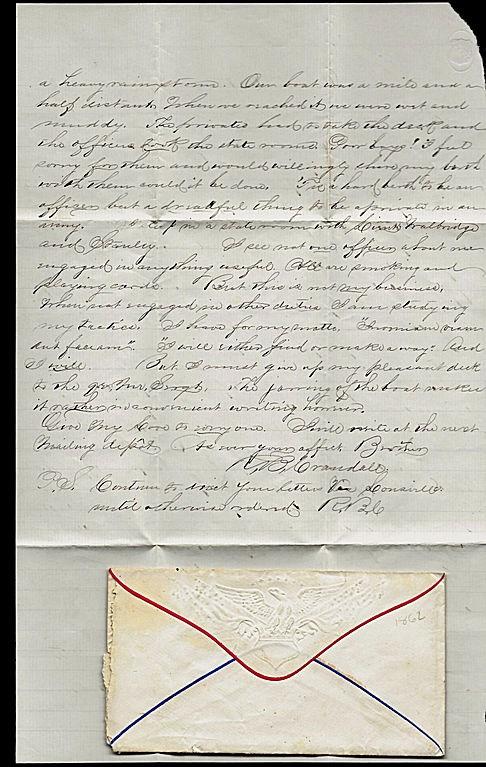 a heavy rain storm. Our boat was a mile and a
half distant. When we reached it we were wet and
muddy. The privates had to take the deck and
the officers took the state rooms. Poor boys! I felt
sorry for them and would willingly share my berth
with them could it be done. Tis a hard berth to be an
officer but a dreadful thing to be a private in an
army. I sleep in a state room with Lieuts Walbridge
and Stanley. I see not one officer about me
engaged in any thing useful. All are smoking and
playing cards. But this is not my business.
When not engaged in other duties I am studying
my tactics. I have for my motto, "Inveniam viam
aut faciam". "I will either find or make a way." And
I will. But I must give up my pleasant desk
to the Qr. Mr. Sergt. The jarring of the boat makes
it rather inconvenient writing
Give My Love to every one. I will write at the next
mailing depot. As ever your affect. Brother
R. B. Crandall
P.S. Continue to direct your letters Via Louisville
until otherwise ordered R B C
1862